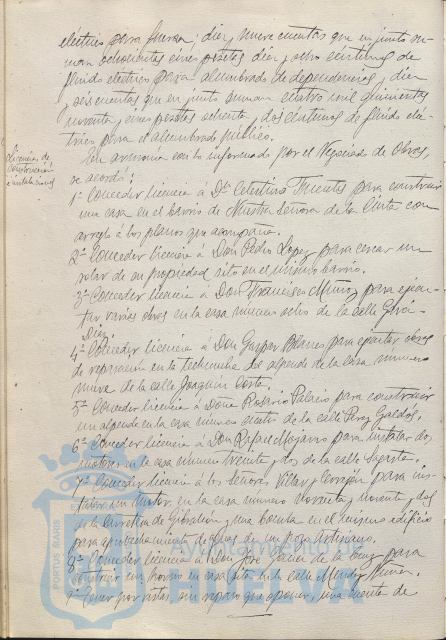 electrico para fuerza; diez y nueve cuentas que en junto su-
man ochocientas cinco pesetas diez y ocho céntimos de
fluido electrico para alumbrado de dependencias, y diez
y seis cuentas que en junto suman cuatro mil quinientas
noventa y cinco pesetas ochenta y dos centimos de fluido eléc-
trico para el alumbrado público.
Licencias de
construcción
é instalaciones
En armonia con lo informado por el Negociado de Obras,
se acordó:
1º Conceder licencia á Dn Celestino para construir
una casa en el barrio de Nuestra Señora de la Cinta con
arreglo á los planos que acompaña.
2º Conceder licencia á Don Pedro Lopez para cercar un
solar de su propiedad sito en el mismo barrio.
3º Conceder licencia á Don Francisco Muñoz para ejecu-
tar varias obras en la casa numero ocho de la calle
Diaz.
4º Conceder licencia á Don Gaspar para ejecutar obras
de reparacion en la techumbre del alpende de la casa numero
nueve de la calle Joaquin Costa.
5º Conceder licencia á Doña Rosario Palacio para construir
un alpende en la casa numero cuatro de la calle Perez Galdós.
6º Conceder licencia á Don Rafael Mojarro para instalar dos
motores en la casa numero treinta y dos de la calle Sagasta.
7º Conceder licencia á los Señores Vilar y para ins-
talar un motor en la casa numero noventa y noventa y dos
de la Carretera de Gibraleón y una bomba en el mismo edificio
para aprovechamiento de aguas de un pozo artesiano.
8º Conceder licencia á Don José Garcia de la Cruz para
construir un horno en casa sita en la calle Mendez Nuñez.
9º Tener por vistas sin reparo que oponer, una cuenta de
PORTUS MARIS
Ayuntamiento de
HUELVA